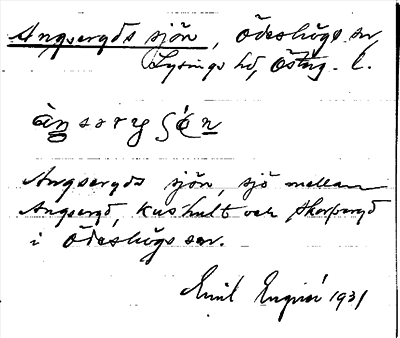 Angsergds sjön, Ödeshögs sn,
Lysings hd, Östg. l.
Angsergds sjön, sjö mellan
Angsergd, Kushult och Skorpergd
i Ödeshögs sn.
Emil 1931